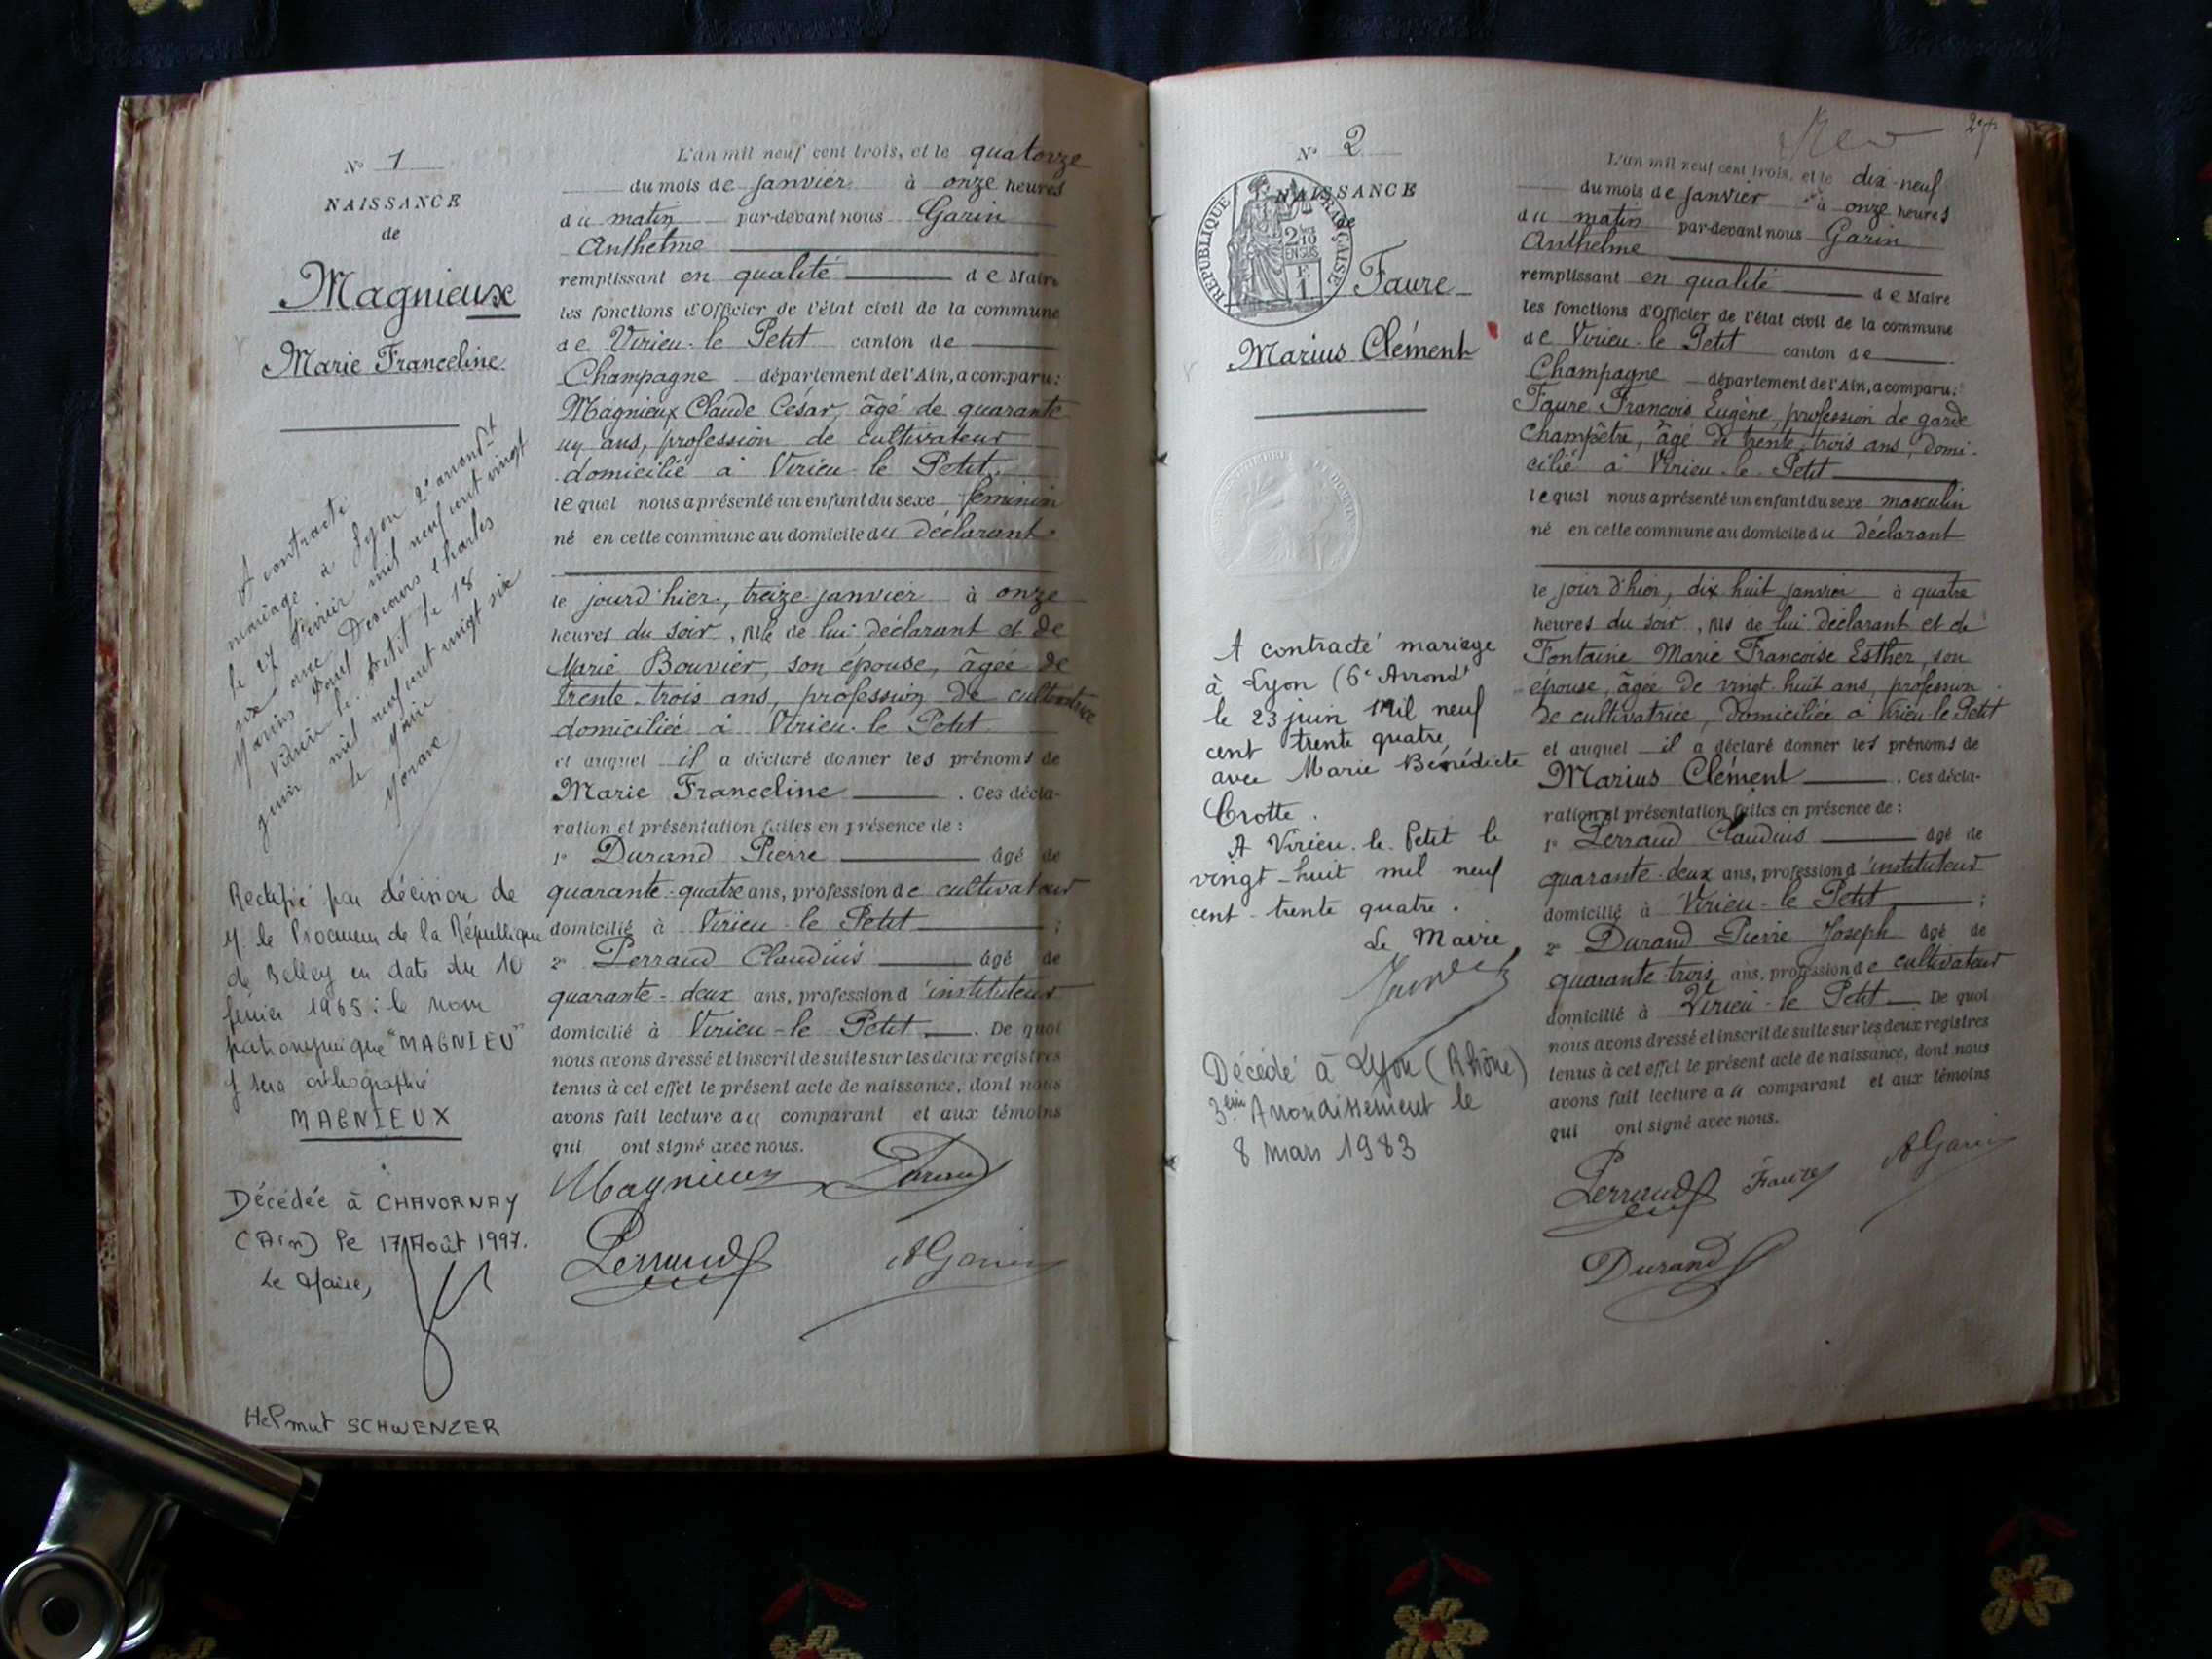 N° 1
NAISSANCE
de
Magnieux
Marie Franceline
A contracté
mariage à Lyon 2e arrondt
le 27 février mil neuf cent vingt
six avec Descours Charles
Marius Paul
Virieu le Petit le 18
juin mil neuf cent vingt six
le Maire
Rectifié par décision de
M. le Procureur de la République
de Belley en date du 10
février 1965 : le nom
patronymique "MAGNIEU"
y sera orthographié
MAGNIEUX
Décédée à CHAVORNAY
(Ain) le 17 Août 1997.
Le Maire,
Helmut SCHWENZER
L'an mil neuf cent trois, et le quatorze
du mois de janvier à onze heures
du matin par-devant nous Garin
Anthelme
remplissant en qualité de Maire
les fonctions d'Officier de l'état civil de la commune
de Virieu-le Petit canton de
Champagne département de l'Ain, a comparu:
Magnieux Claude César, âgé de quarante
un ans, profession de cultivateur
domicilié à Virieu-le Petit.
lequel nous a présenté un enfant du sexe féminin
né en cette commune au domicile du déclarant
le jourd'hier, treize janvier à onze
heures du soir, fille de lui déclarant et de
Marie Bouvier, son épouse, âgée de
trente-trois ans, profession de cultivatrice
domiciliée à Virieu-le Petit
et auquel il a déclaré donner les prénoms de
Marie Franceline . Ces décla-
ration et présentation faites en présence de :
1° Durand Pierre âgé de
quarante-quatre ans, profession de cultivateur
domicilié à Virieu-le Petit ;
2° Perraud Claudius âgé de
quarante-deux ans, profession d'instituteur
domicilié à Virieu-le Petit . De quoi
nous avons dressé et inscrit de suite sur les deux registres
tenus à cet effet le présent acte de naissance, dont nous
avons fait lecture au comparant et aux témoins
qui ont signé avec nous.
Magnieux Durand
Perraud AGarin
N° 2
NAISSANCE
de
REPUBLIQUE FRANÇAISE
2/10 EN SUS
F.
1
Faure
Marius Clément
A contracté mariage
à Lyon (6e Arrondt
le 23 juin mil neuf
cent trente quatre
avec Marie Bénédicte
Crotte.
A Virieu-le-Petit le
vingt-huit mil neuf
cent-trente quatre.
Le Maire
Décédé à Lyon (Rhône)
3ème Arrondissement le
8 mars 1983
L'an mil neuf cent trois, et le dix-neuf
du mois de janvier à onze heures
du matin par-devant nous Garin
Anthelme
remplissant en qualité de Maire
les fonctions d'Officier de l'état civil de la commune
de Virieu-le Petit canton de
Champagne département de l'Ain, a comparu:
Faure François Eugène, profession de garde
champêtre, âgé de trente-trois ans, domi-
cilié à Virieu-le-Petit
lequel nous a présenté un enfant du sexe masculin
né en cette commune au domicile du déclarant
le jour d'hier, dix huit janvier à quatre
heures du soir, fils de lui déclarant et de
Fontaine Marie Françoise Esther, son
épouse, âgée de vingt-huit ans, profession
de cultivatrice, domiciliée à Virieu-le Petit
et auquel il a déclaré donner les prénoms de
Marius Clément . Ces décla-
ration et présentation faites en présence de :
1° Perraud Claudius âgé de
quarante-deux ans, profession d'instituteur
domicilié à Virieu-le Petit ;
2° Durand Pierre Joseph âgé de
quarante-trois ans, profession de cultivateur
domicilié à Virieu-le Petit De quoi
nous avons dressé et inscrit de suite sur les deux registres
tenus à cet effet le présent acte de naissance, dont nous
avons fait lecture au comparant et aux témoins
qui ont signé avec nous.
Perraud Faure AGarin
Durand